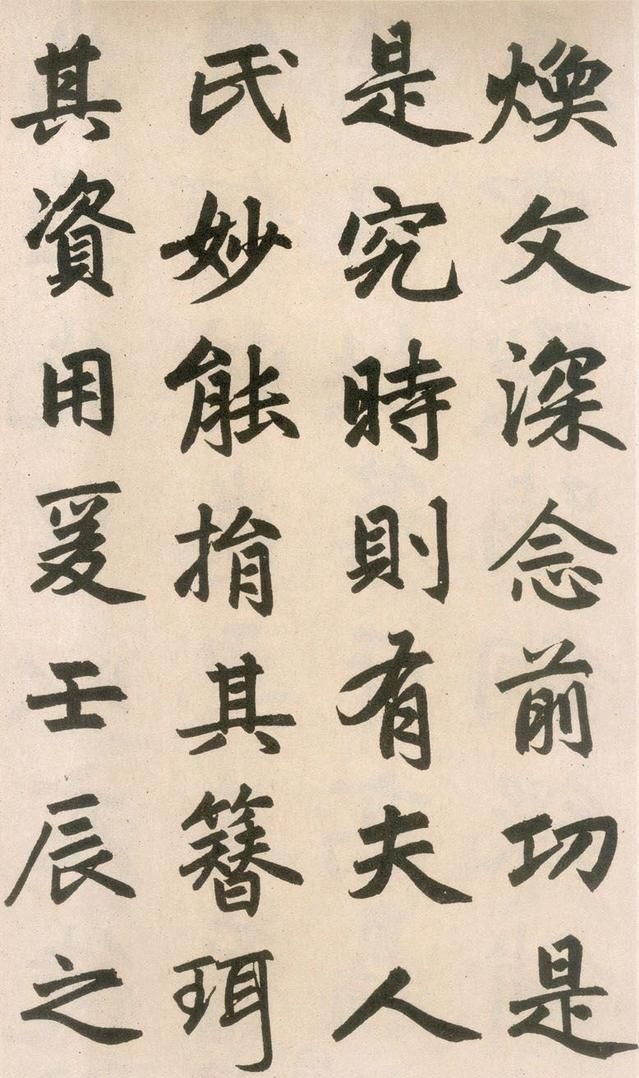 煥文深念前功是
是究時則有夫人
氏妙能捐其簪珥
其資用爰壬辰之